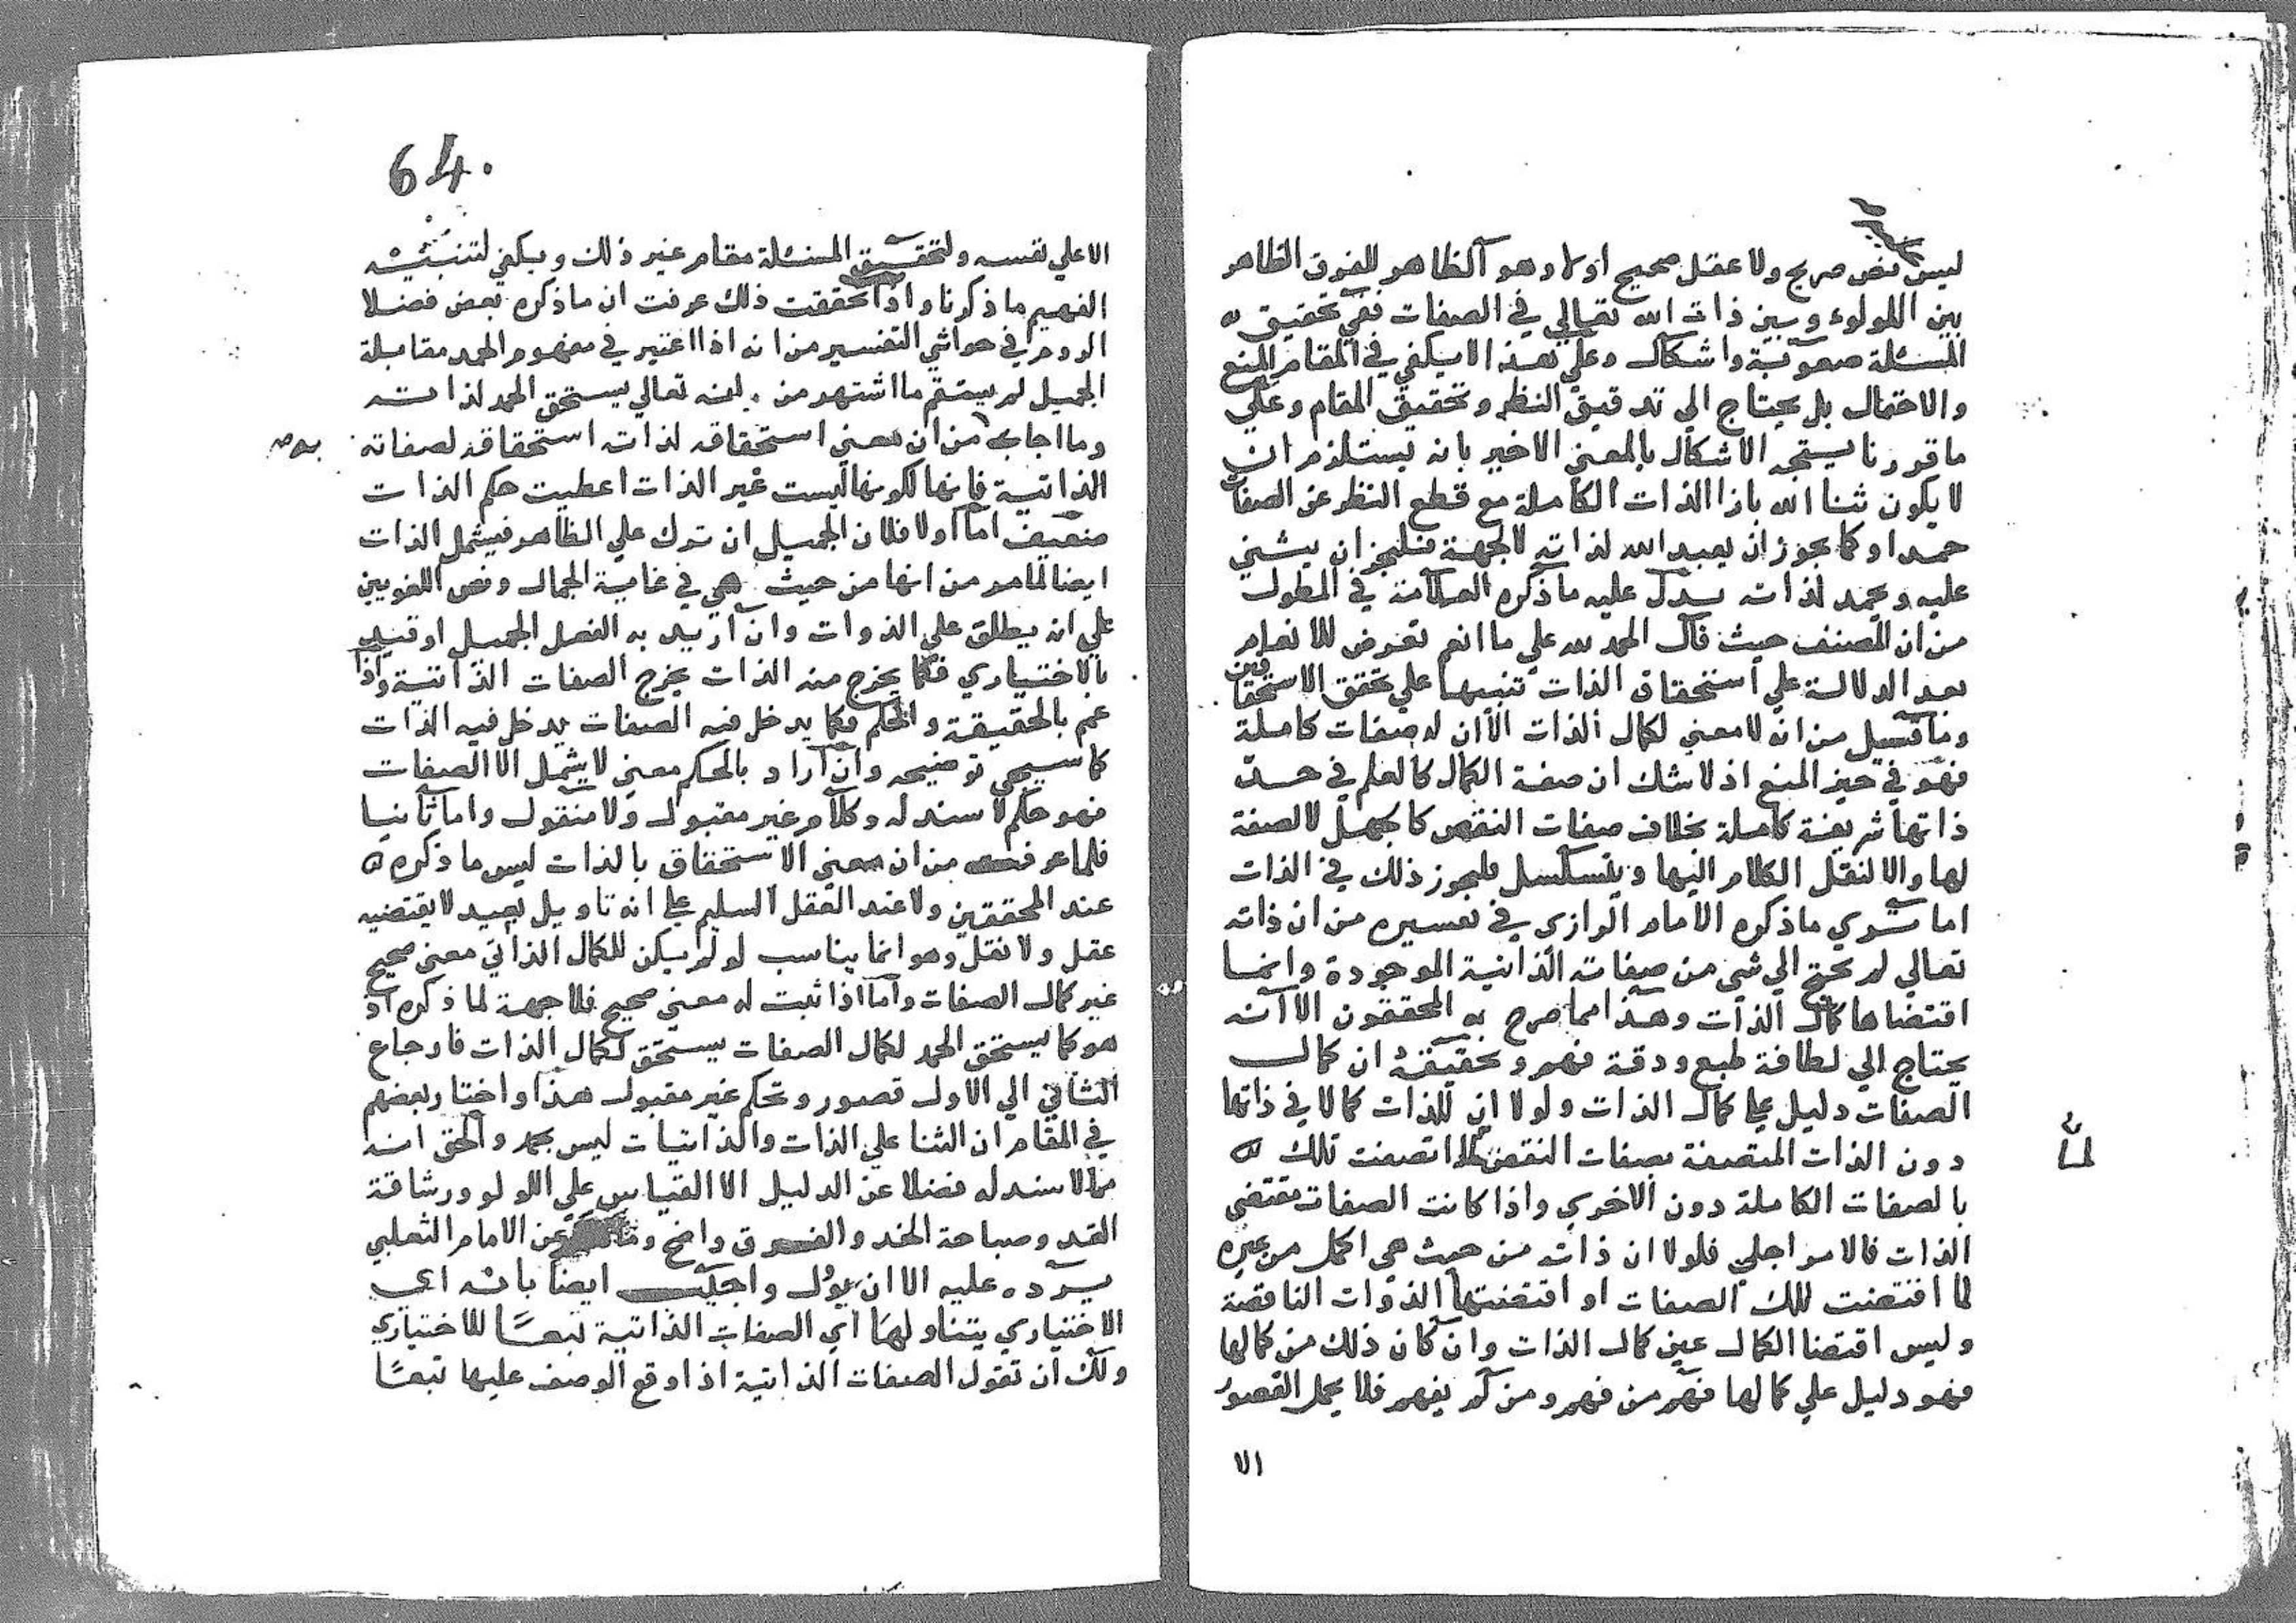 ليس نص صريح ولا عقل صحيح اولا وهو الظاهر للفرق الظاهر
بين اللولوء وبين ذات الله تعالي في الصفات ففي تحقيق
المسئلة صعوبة واشكال وعلي هذا لا يكفي في المقام المنع
والاحتمال بل يحتاج الي تدقيق النظر وتحقيق المقام وعلي
ما قررنا يتجه الاشكال بالمعني الاخير بانه يستلزم ان
لا يكون ثنا الله بازا الذات الكاملة مع قطع النظر عن الصفات
حمدا وكما يجوز ان يعبد الله لذاته لا لجهة فليجز ان يثني
عليه ويحمد لذاته يدل عليه ما ذكره العلامة في المطول
من ان المصنف حيث قال الحمد لله علي ما انعم تعرض للانعام
بعد الدلالة علي استحقاق الذات تنبيها علي تحقق الاستحقاقين
وما قيل من انه لا معني لكمال الذات الا ان له صفات كاملة
فهو في حيز المنع اذ لا شك ان صفة الكمال كالعلم في حد
ذاتها شريفة كاملة بخلاف صفات النقص كالجهل لا لصفة
لها والا لنقل الكلام اليها ويتسلسل فليجوز ذلك في الذات
اما تري ما ذكره الامام الرازي في تفسيره من ان ذاته
تعالي لم تحتج الي شي من صفاته الذاتية الموجودة وانما
اقتضاها كمال الذات وهذا مما صرح به المحققون الا انه
يحتاج الي لطافة طبع ودقة فهم وتحقيقه ان كمال
الصفات دليل علي كمال الذات ولولا ان للذات كمالا في ذاتها
دون الذات المتصفة بصفات النقص لما اتصفت تلك
لما
بالصفات الكاملة دون الاخري واذا كانت الصفات مقتضي
الذات فالامر اجلي فلولا ان ذاته من حيث هي اكمل من غيره
لما اقتضت تلك الصفات او اقتضتها الذوات الناقصة
وليس اقتضا الكمال عين كمال الذات وان كان ذلك من كمالها
فهو دليل علي كمالها فهم من فهم ومن لم يفهم فلا يحمل القصور
الا
64.
الا علي نفسه ولتحقيق المسئلة مقام غير ذلك ويكفي لتنبيه
الفهيم ما ذكرنا واذا تحققت ذلك عرفت ان ما ذكره بعض فضلا
الروم في حواشي التفسير من انه اذا اعتبر في مفهوم الحمد مقابلة
الجميل لم يستقم ما اشتهر من انه تعالي يستحق الحمد لذاته
وما اجاب من ان معني استحقاقه لذاته استحقاقه لصفاته
الذاتية فانها لكونها ليست غير الذات اعطيت حكم الذات
ضعيف اما اولا فلان الجميل ان ترك علي الظاهر فيشمل الذات
ايضا لما مر من انها من حيث هي في غاية الجمال ونص اللغويين
علي انه يطلق علي الذوات وان اريد به الفعل الجميل او قيد
بالاختياري فكما يخرج منه الذات يخرج الصفات الذاتية واذا
عم بالحقيقة والحكم فكما يدخل فيه الصفات يدخل فيه الذات
كما سيجي توضيحه وان اراد بالحكم معني لا يشمل الا الصفات
فهو حكم لا سند له وكلام غير مقبول ولا منقول واما ثانيا
فلما عرفت من ان معني الاستحقاق بالذات ليس ما ذكره
عند المحققين ولا عند العقل السليم علي انه تاويل بعيد لا يقتضيه
عقل ولا نقل وهو انما يناسب لو لم يكن للكمال الذاتي معني صحيح
غير كمال الصفات واما اذا ثبت له معني صحيح فلا جهة لما ذكره اذ
هو كما يستحق الحمد لكمال الصفات يستحق لكمال الذات فارجاع
الثاني الي الاول قصور وتحكم غير مقبول هذا واختار بعضهم
في المقام ان الثنا علي الذات والذاتيات ليس بحمد والحق انه
مما لا سند له فضلا عن الدليل الا القياس علي اللولو ورشاقة
القد وصباحة الخد والفرق واضح وما عن الامام الثعلبي
يرد عليه الا ان يؤل واجيب ايضا بانه اي
الاختياري يتناولها اي الصفات الذاتية تبعًا للاختياري
ولك ان تقول الصفات الذاتية اذا وقع الوصف عليها تبعًا